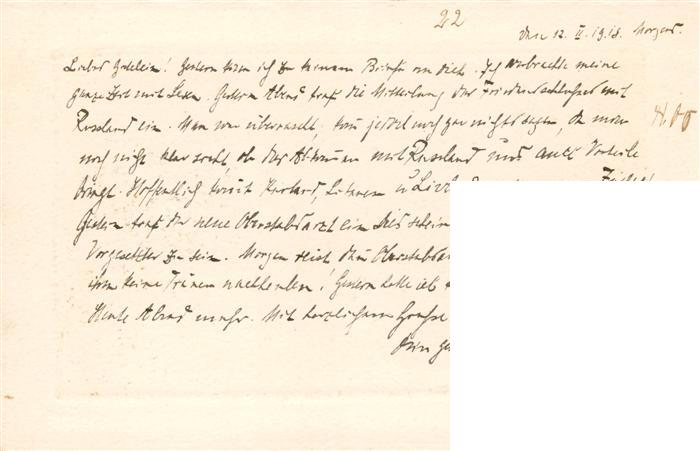 22
den 12. II. 1918. Morgens.
Liebes Gretelein! Gestern kam ich zu keinem Briefe an dich. Ich verbrachte meine
ganze Zeit mit Lesen. Gestern Abend traf die Mitteilung des Friedensschlusses mit
Russland ein. Man war überrascht, kann jedoch noch gar nichts sagen, da man
noch nicht klar sieht, ob das Abkommen mit Russland uns auch Vorteile
bringt. Hoffentlich Kurland, Litauen u.
Gestern traf der neue Oberstabsarzt ein. Dies
Vorgesetzter zu sein. Morgen reist dann
ihm keine Tränen nachweinen! Gestern hatte ich
Heute Abend mehr. Mit herzlichem Grusse
Dein